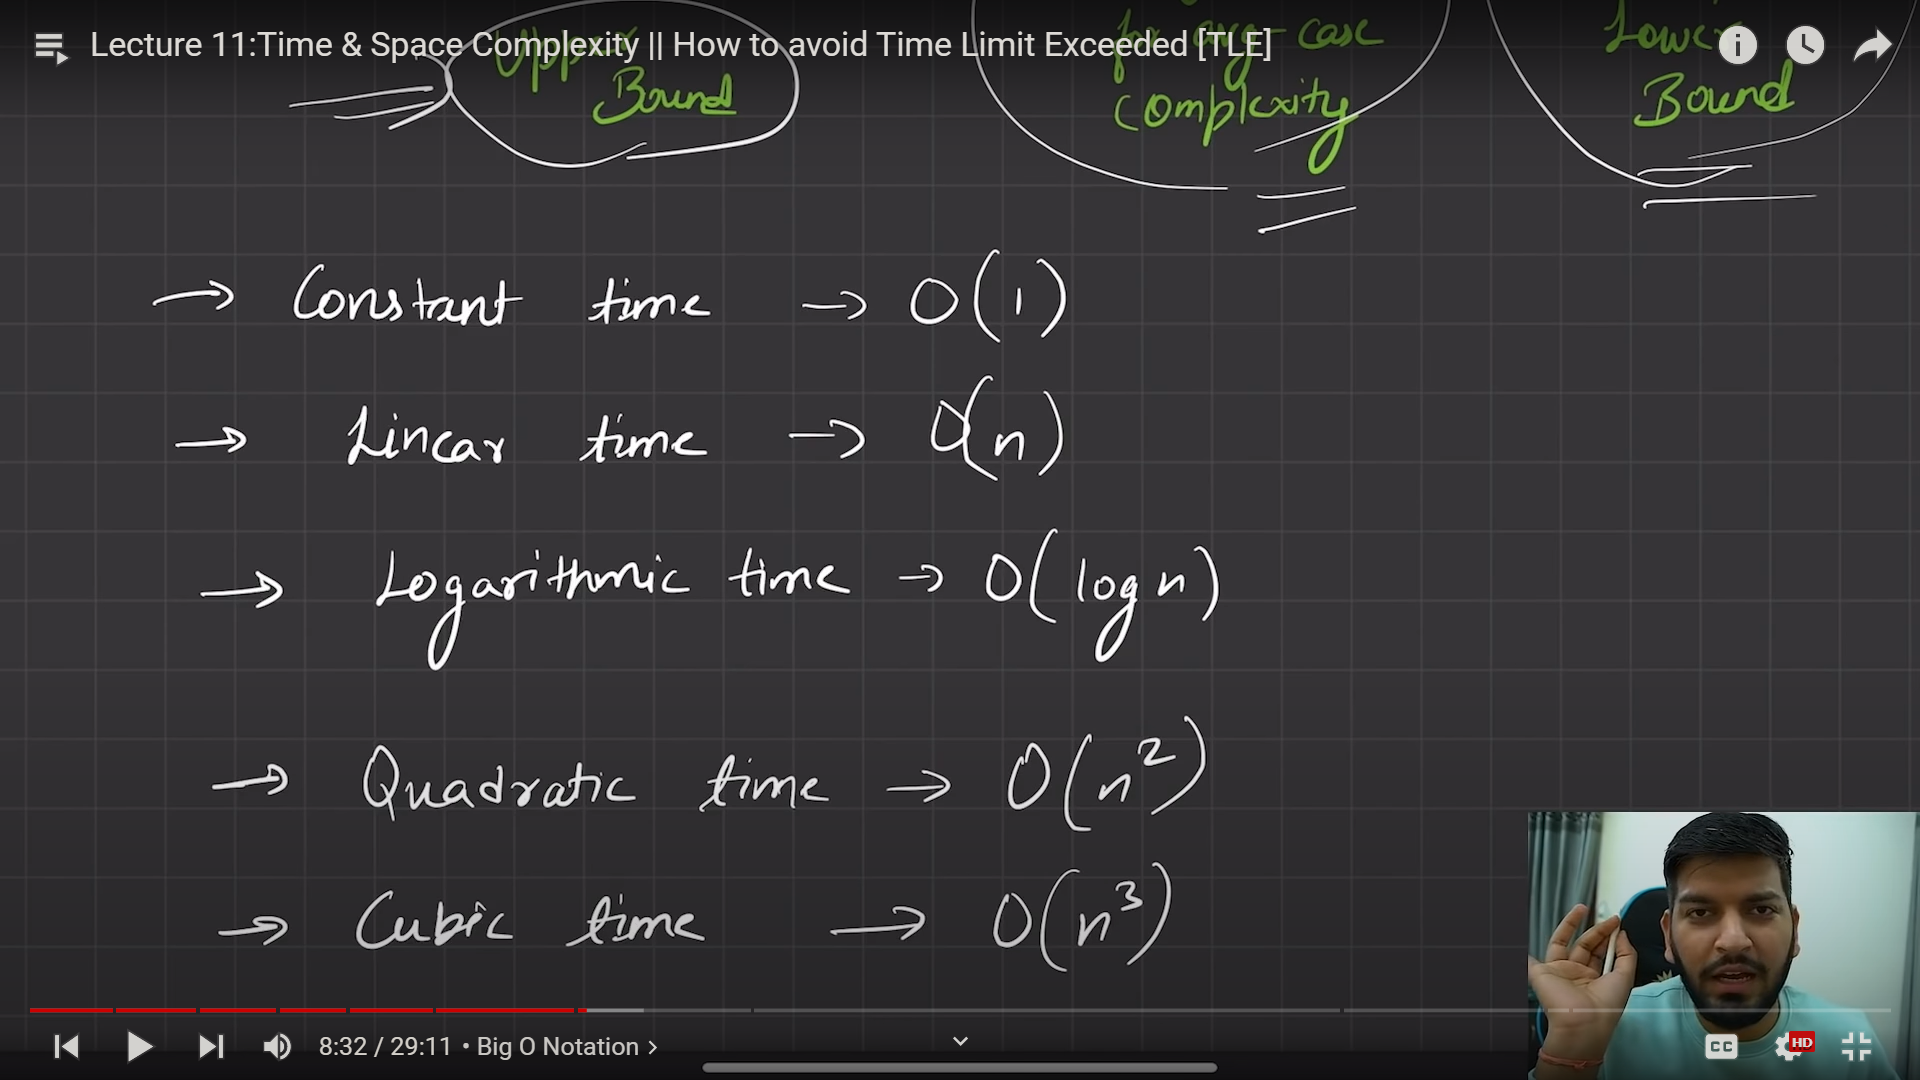 Lecture 11:Time & Space Complexity || How to avoid Time Limit Exceeded [TLE]
Upper
Bound
for avg-case
complexity
Lower
Bound
→ Constant time → O(1)
→ Linear time → O(n)
→ Logarithmic time → O(log n)
→ Quadratic time → O(n²)
→ Cubic time → O(n³)
8:32 / 29:11 • Big O Notation >
CC
HD